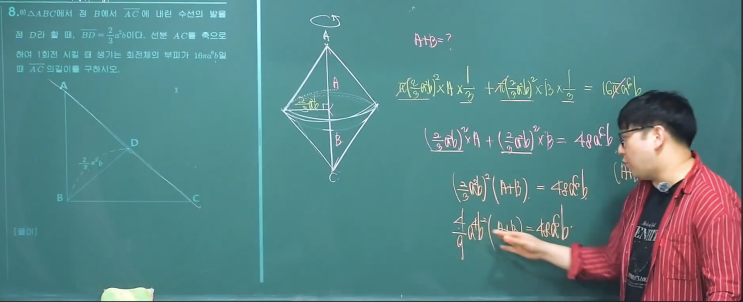 8. △ABC에서 점 B에서 AC에 내린 수선의 발을
점 D라 할 때, BD=2/3a²b이다. 선분 AC를 축으로
하여 1회전 시킬 때 생기는 회전체의 부피가 16πa⁶b일
때 AC의길이를 구하시오.
A
D
2/3a²b
B
C
[풀이]
A
A
2/3a²b
B
C
A+B=?
π(2/3a²b)²×A×1/3 + π(2/3a²b)²×B×1/3 = 16πa⁶b
(2/3a²b)²×A + (2/3a²b)²×B = 48a⁶b
(2/3a²b)²(A+B) = 48a⁶b
4/9a⁴b²(A+B)=48a⁶b